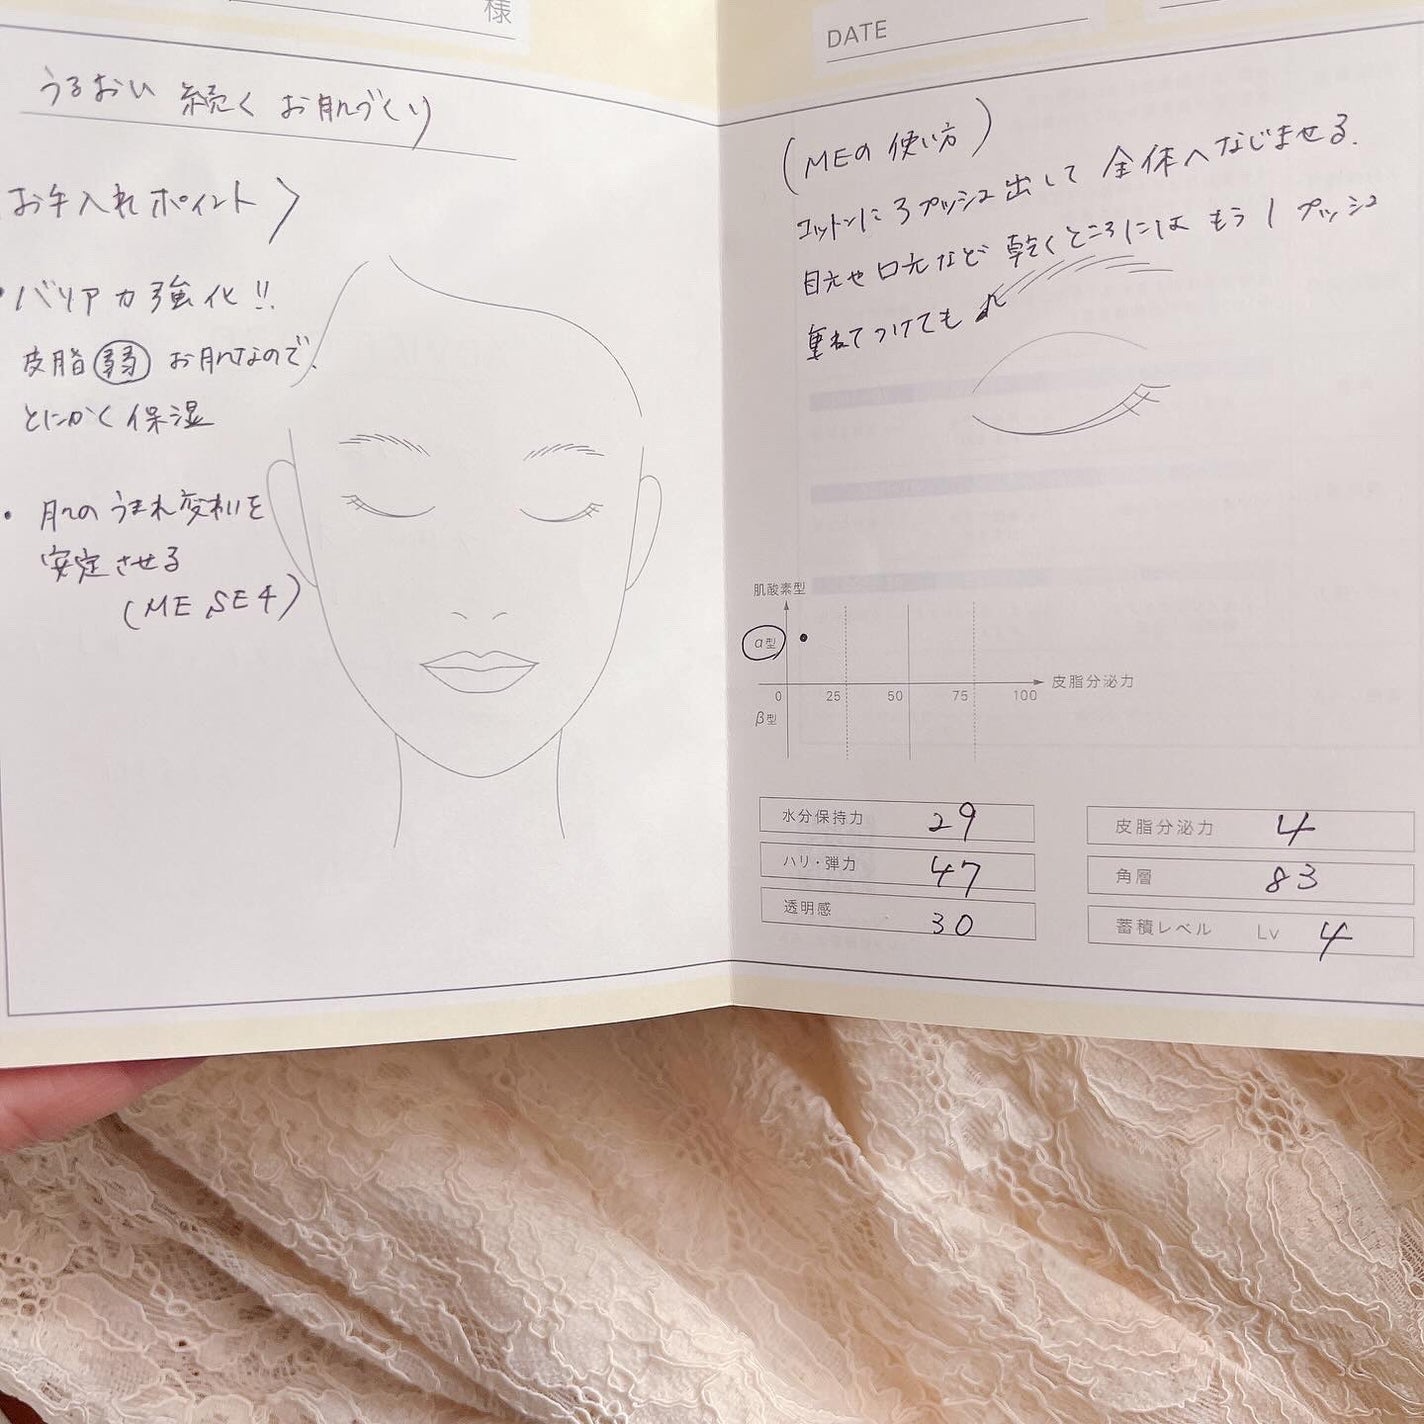 様
うるおい 続く お肌づくり
お手入れポイント〉
・バリア力強化!!
皮脂 弱 お肌なので、
とにかく保湿
・肌のうまれ変わりを
安定させる
(ME SE4)
DATE
(MEの使い方)
コットンに3プッシュ出して 全体へなじませる.
目元や口元など 乾くところには もう1プッシュ
重ねてつけても
肌酸素型
α型
0 25 50 75 100 皮脂分泌力
β型
水分保持力 29
ハリ・弾力 47
透明感 30
皮脂分泌力 4
角層 83
蓄積レベル Lv 4